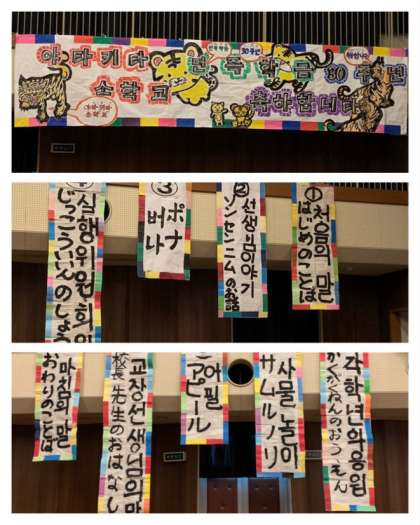 야타키타 민족학급 30주년
소학교 축하합니다
민족학급 30주년
①처음의 말
はじめのことば
②선생님이야기
ソンセンニムのお話
③
ポナ
버나
실행위원회의
じっこういいんのしょう
각학년의응원
かくがくねんのおうえん
사물놀이
サムルノリ
어필
アピール
교장선생님의말
校長先生のおはなし
마침의 말
おわりのことば